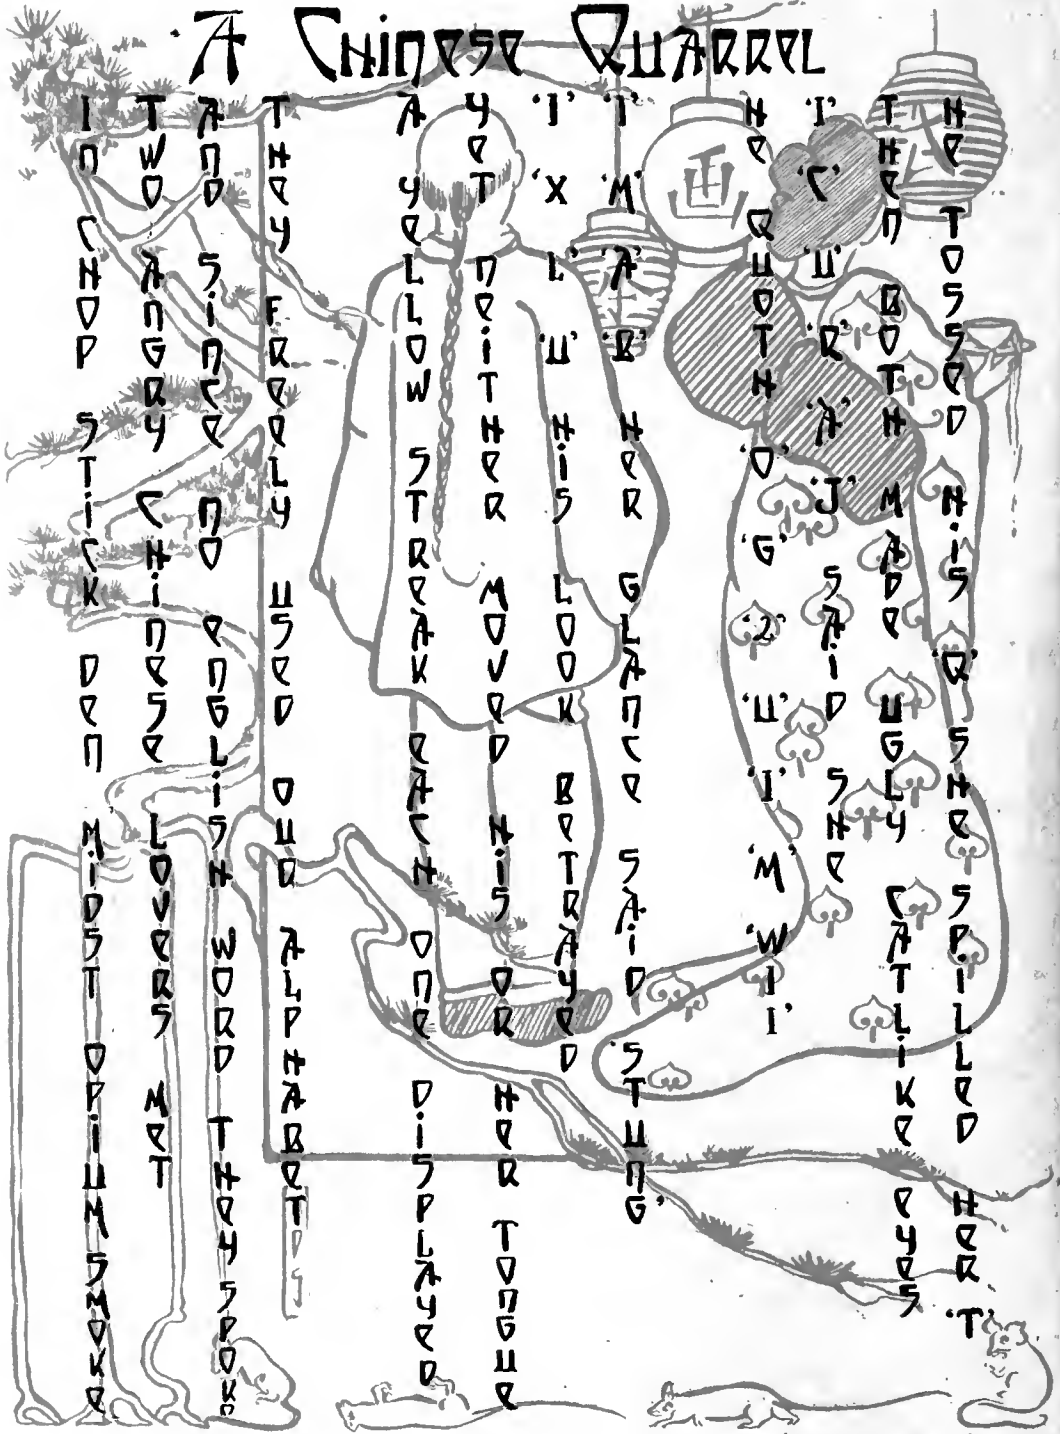 A Chinese Quarrel
In chop stick den midst opium smoke
Two angry Chinese lovers met
And since no English word they spoke
They freely used our alphabet
A yellow streak each one displayed
Yet neither moved his or her tongue
'I' 'X' 'L' 'U' his look betrayed
'I' 'M' 'A' 'B' her glance said 'stung'
He quoth 'O' 'G' '2' 'U' 'I' 'M' 'WII'
'I' 'C' 'U' 'R' 'A' 'J' said she
Then both made ugly catlike eyes
He tossed his 'Q' she spilled her 'T'